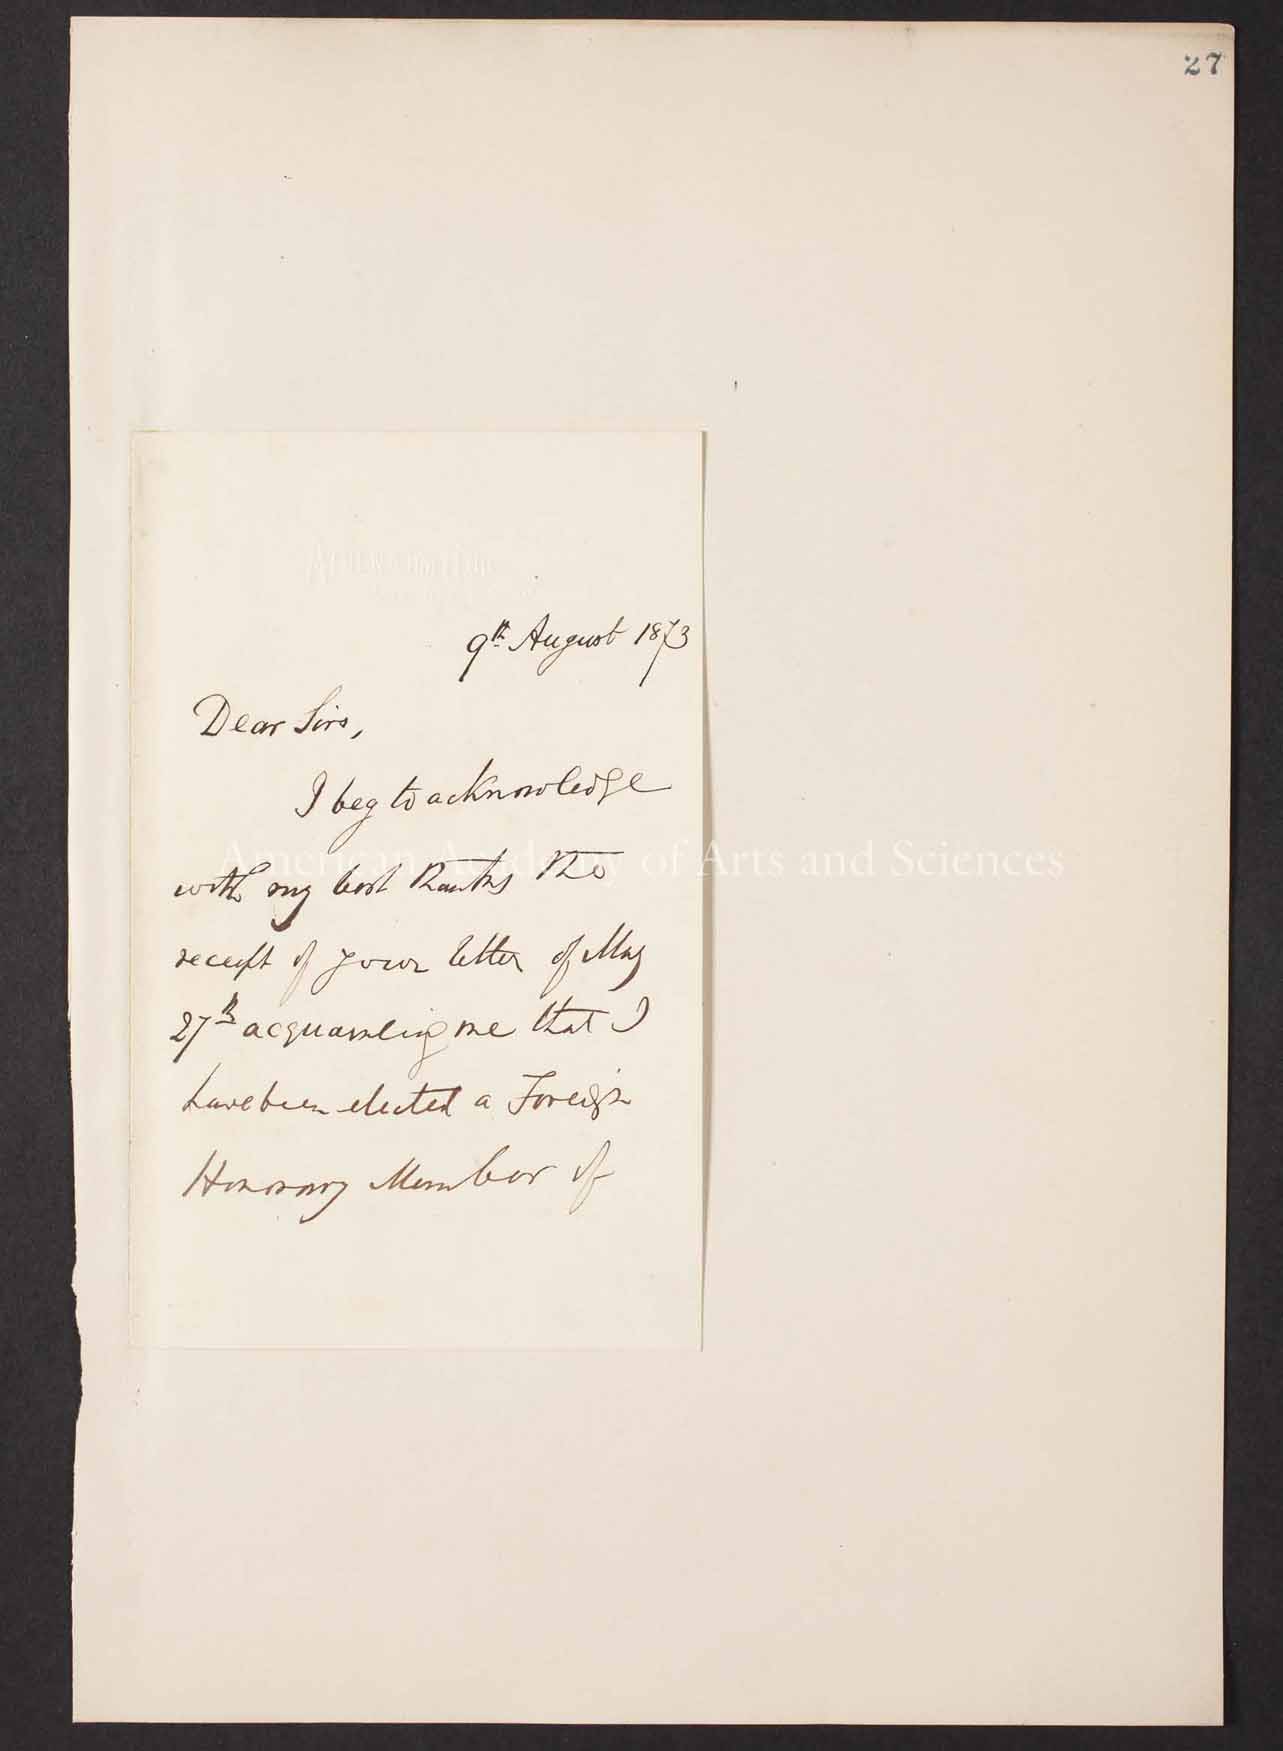 27
9th August 1873
Dear Sirs,
I beg to acknowledge
American Academy of Arts and Sciences
with my best thanks the
receipt of your letter of May
27th acquainting me that I
have been elected a Foreign
Honorary Member of